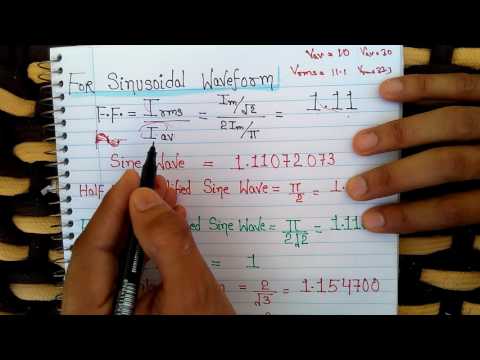 Vav = 10 Vav = 30
Vrms = 11.1
For Sinusoidal Waveform
F.F. = Irms / Iav = Im/√2 / 2Im/π = 1.11
Sine Wave = 1.11072073
Half Sine Wave = π/2 = 1.
Sine Wave = π/2√2 = 1.11
= 1
= 2/√3 = 1.154700